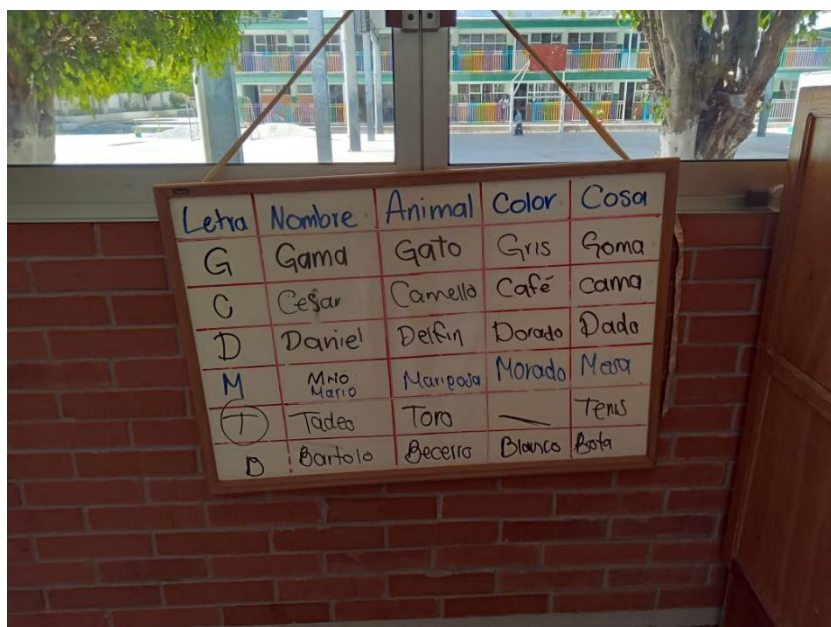 Letra Nombre Animal Color Cosa
G Gama Gato Gris Goma
C Cesar Camello Café cama
D Daniel Delfin Dorado Dado
M Mrio Mario Mariposa Morado Mesa
T Tadeo Toro — Tenis
B Bartolo Becerro Blanco Bota